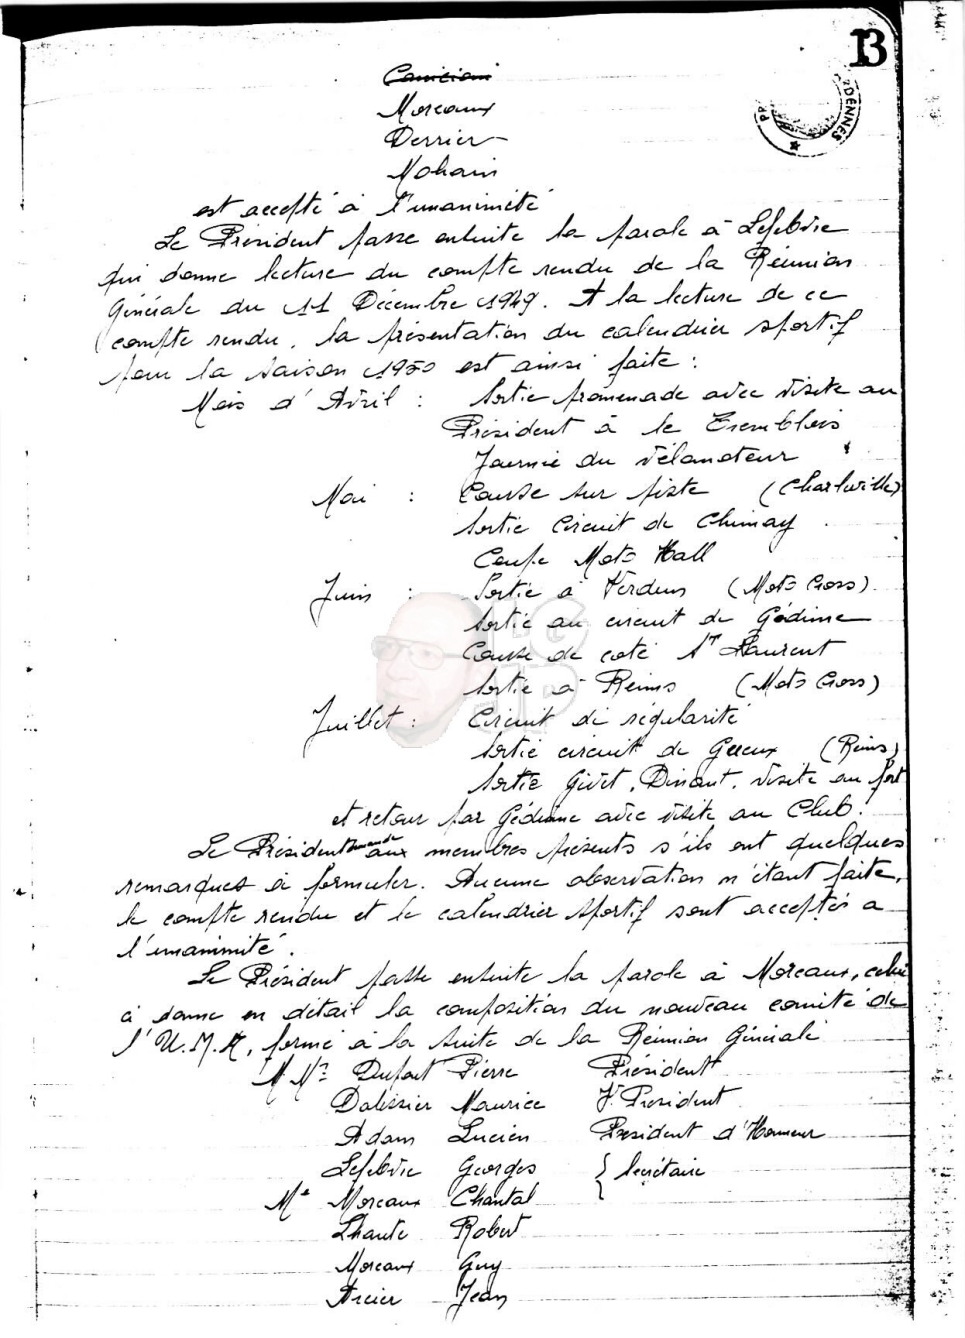 13
DENNES
Moreaux
Derrier
Mohain
est accepté à l'unanimité
Le Président passe ensuite la parole à Lefebvre
qui donne lecture du compte rendu de la Réunion
Générale du 11 Décembre 1949. A la lecture de ce
compte rendu, la présentation du calendrier sportif
pour la saison 1950 est ainsi faite :
Mois d'Avril : Sortie promenade avec visite au
Président à le Tremblois
Journée du vélamoteur
Mai : Course sur piste (Charleville)
Sortie Circuit de Chimay
Coupe Moto Hall
Juin : Sortie à Verdun (Moto Cross)
Sortie au circuit de Gédinne
Course de coté St Laurent
Sortie à Reims (Moto Cross)
Juillet : Circuit de régularité
Sortie circuit de Gueux (Reims)
Sortie Givet, Dinant, visite au fort
et retour par Gédinne avec visite au Club.
Le Président demande aux membres présents s'ils ont quelques
remarques à formuler. Aucune observation n'étant faite,
le compte rendu et le calendrier sportif sont acceptés a
l'unanimité.
Le Président passe ensuite la parole à Moreaux, celui
ci donne en détail la composition du nouveau comité de
l'U.M.A, formé à la suite de la Réunion Générale
M Mrs Dupont Pierre Président
Dalissier Maurice V. Président
Adam Lucien President d'Honneur
Lefebvre Georges } Secrétaire
Me Moreaux Chantal
Lhante Robert
Moreaux Guy
Arcier Jean